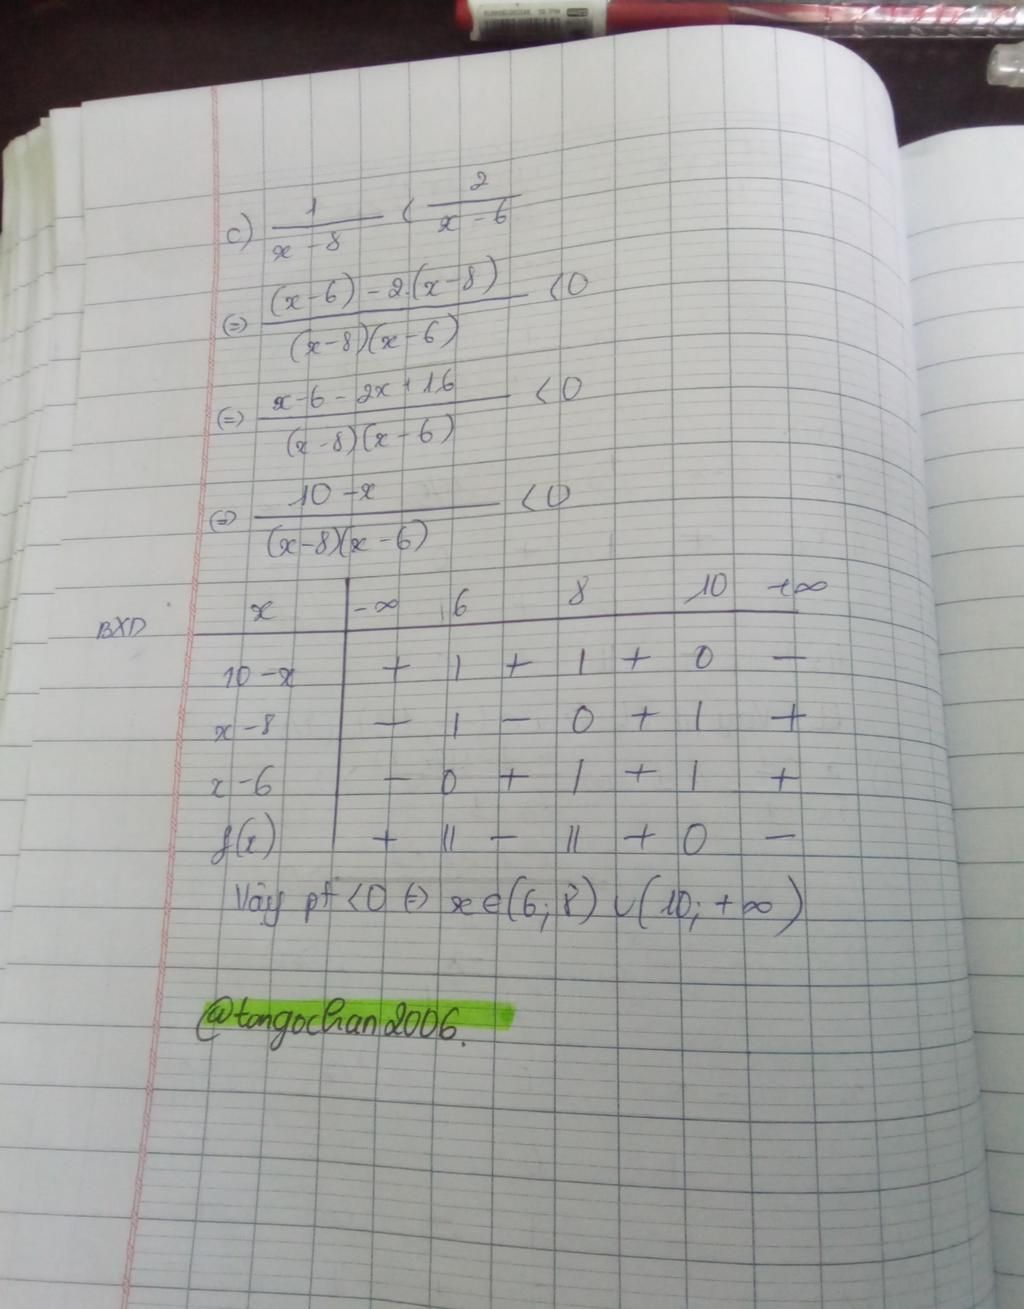 c) 1/(x-8) < 2/(x-6)
(=) ((x-6) - 2.(x-8))/((x-8)(x-6)) < 0
(=) (x-6-2x+16)/((x-8)(x-6)) < 0
(=) (10-x)/((x-8)(x-6)) < 0
BXD x | -∞ 6 8 10 +∞
10-x | + | + | + 0 -
x-8 | - | - 0 + | +
x-6 | - 0 + | + | +
f(x) | + || - || + 0 -
Vậy pt <0 (=) x∈(6;8) ∪ (10;+∞)
@tongochan2006.